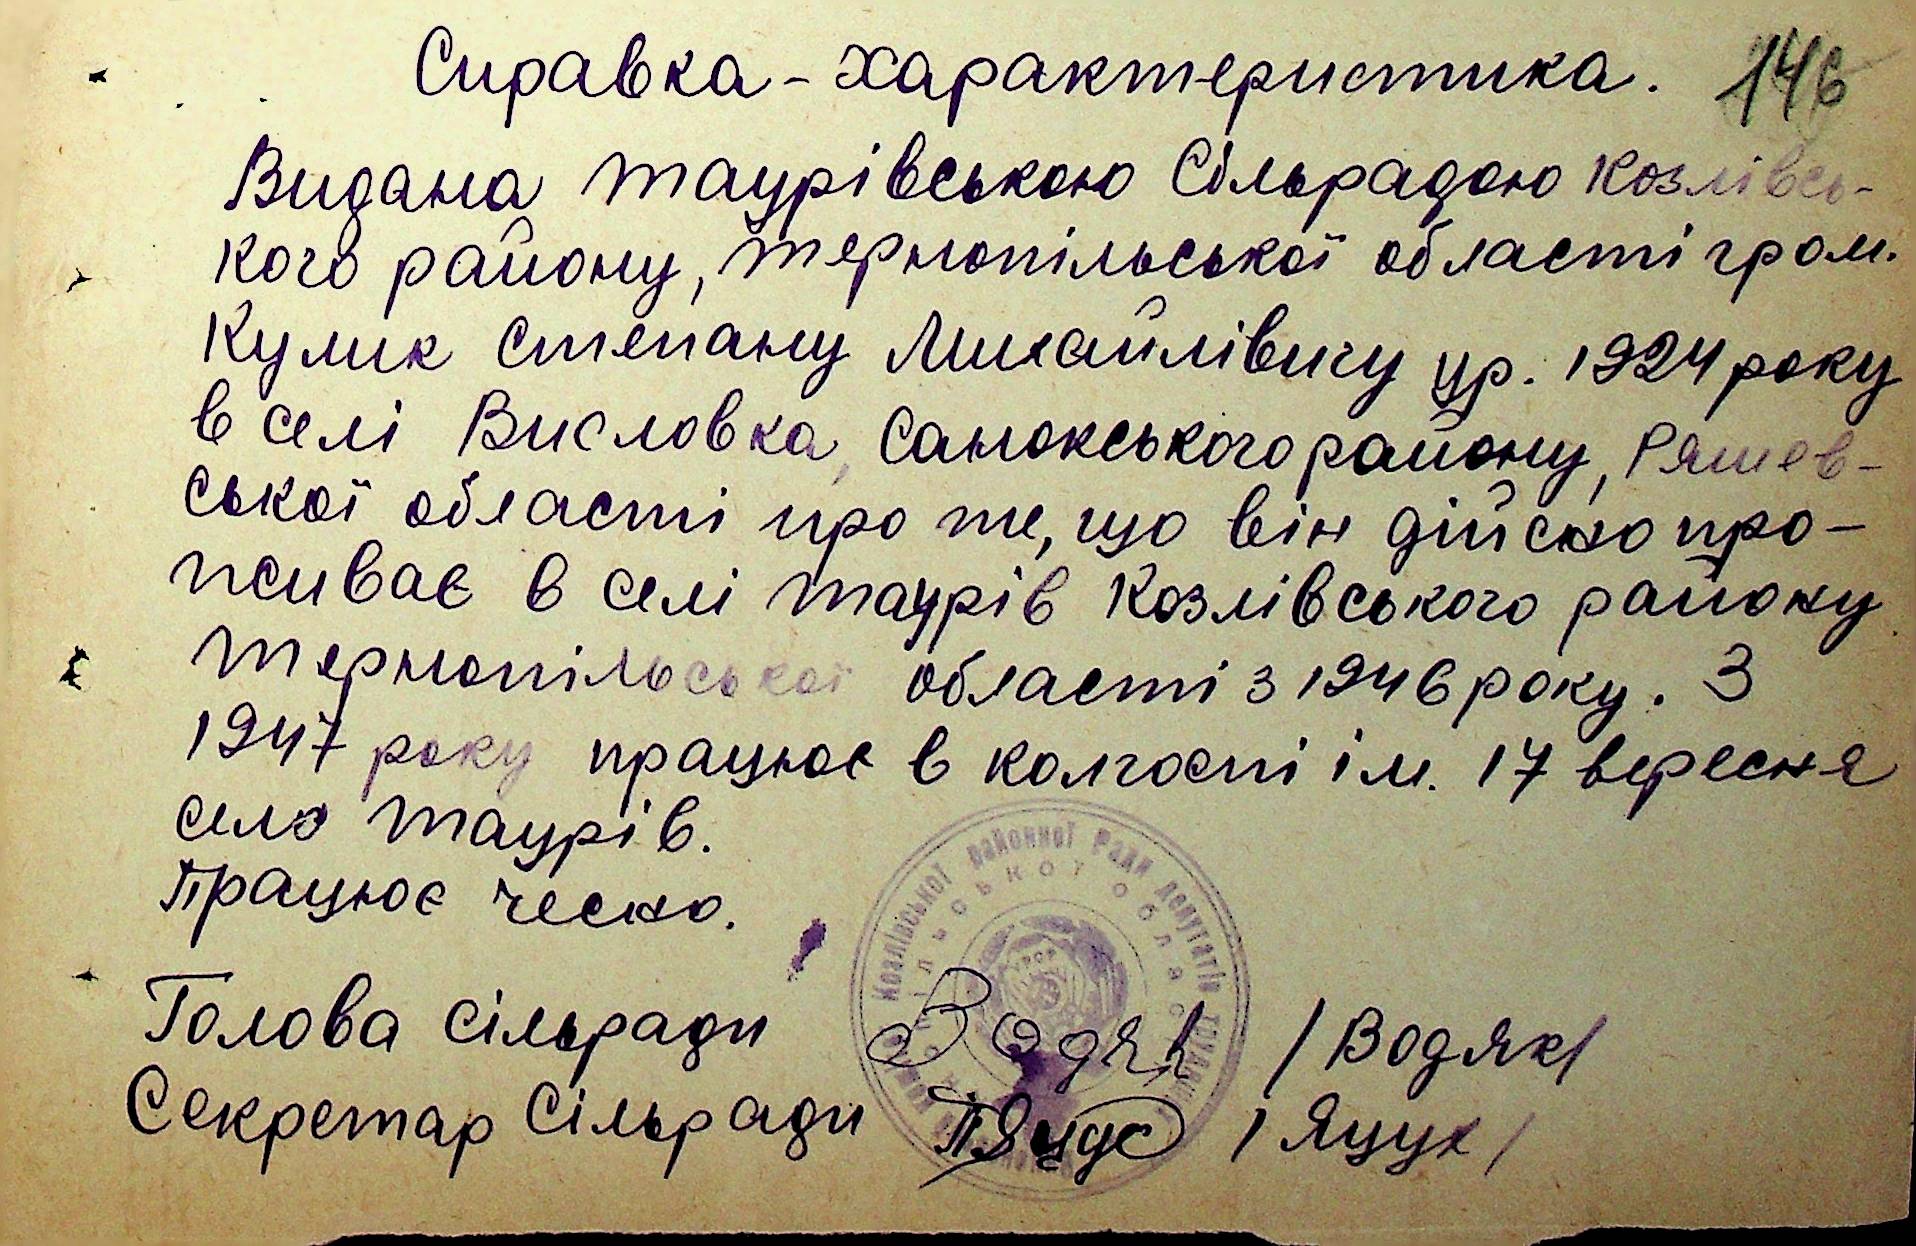 146
Справка-характеристика.
Видана Таурівською Сільрадою Козлівсь-
кого району, Тернопільської області гром.
Кулик Степану Михайлівичу ур. 1924 року
в селі Висловка, Санокського району, Ряшев-
ської області про те, що він дійсно про-
живає в селі Таурів Козлівського району
Тернопільської області з 1946 року. З
1947 року працює в колгоспі ім. 17 вересня
село Таурів.
Працює чесно.
Голова сільради Водяк /Водяк/
Секретар Сільради /Яцук/
Козлівської районної Ради депутатів трудящих
ської облас
УРСР